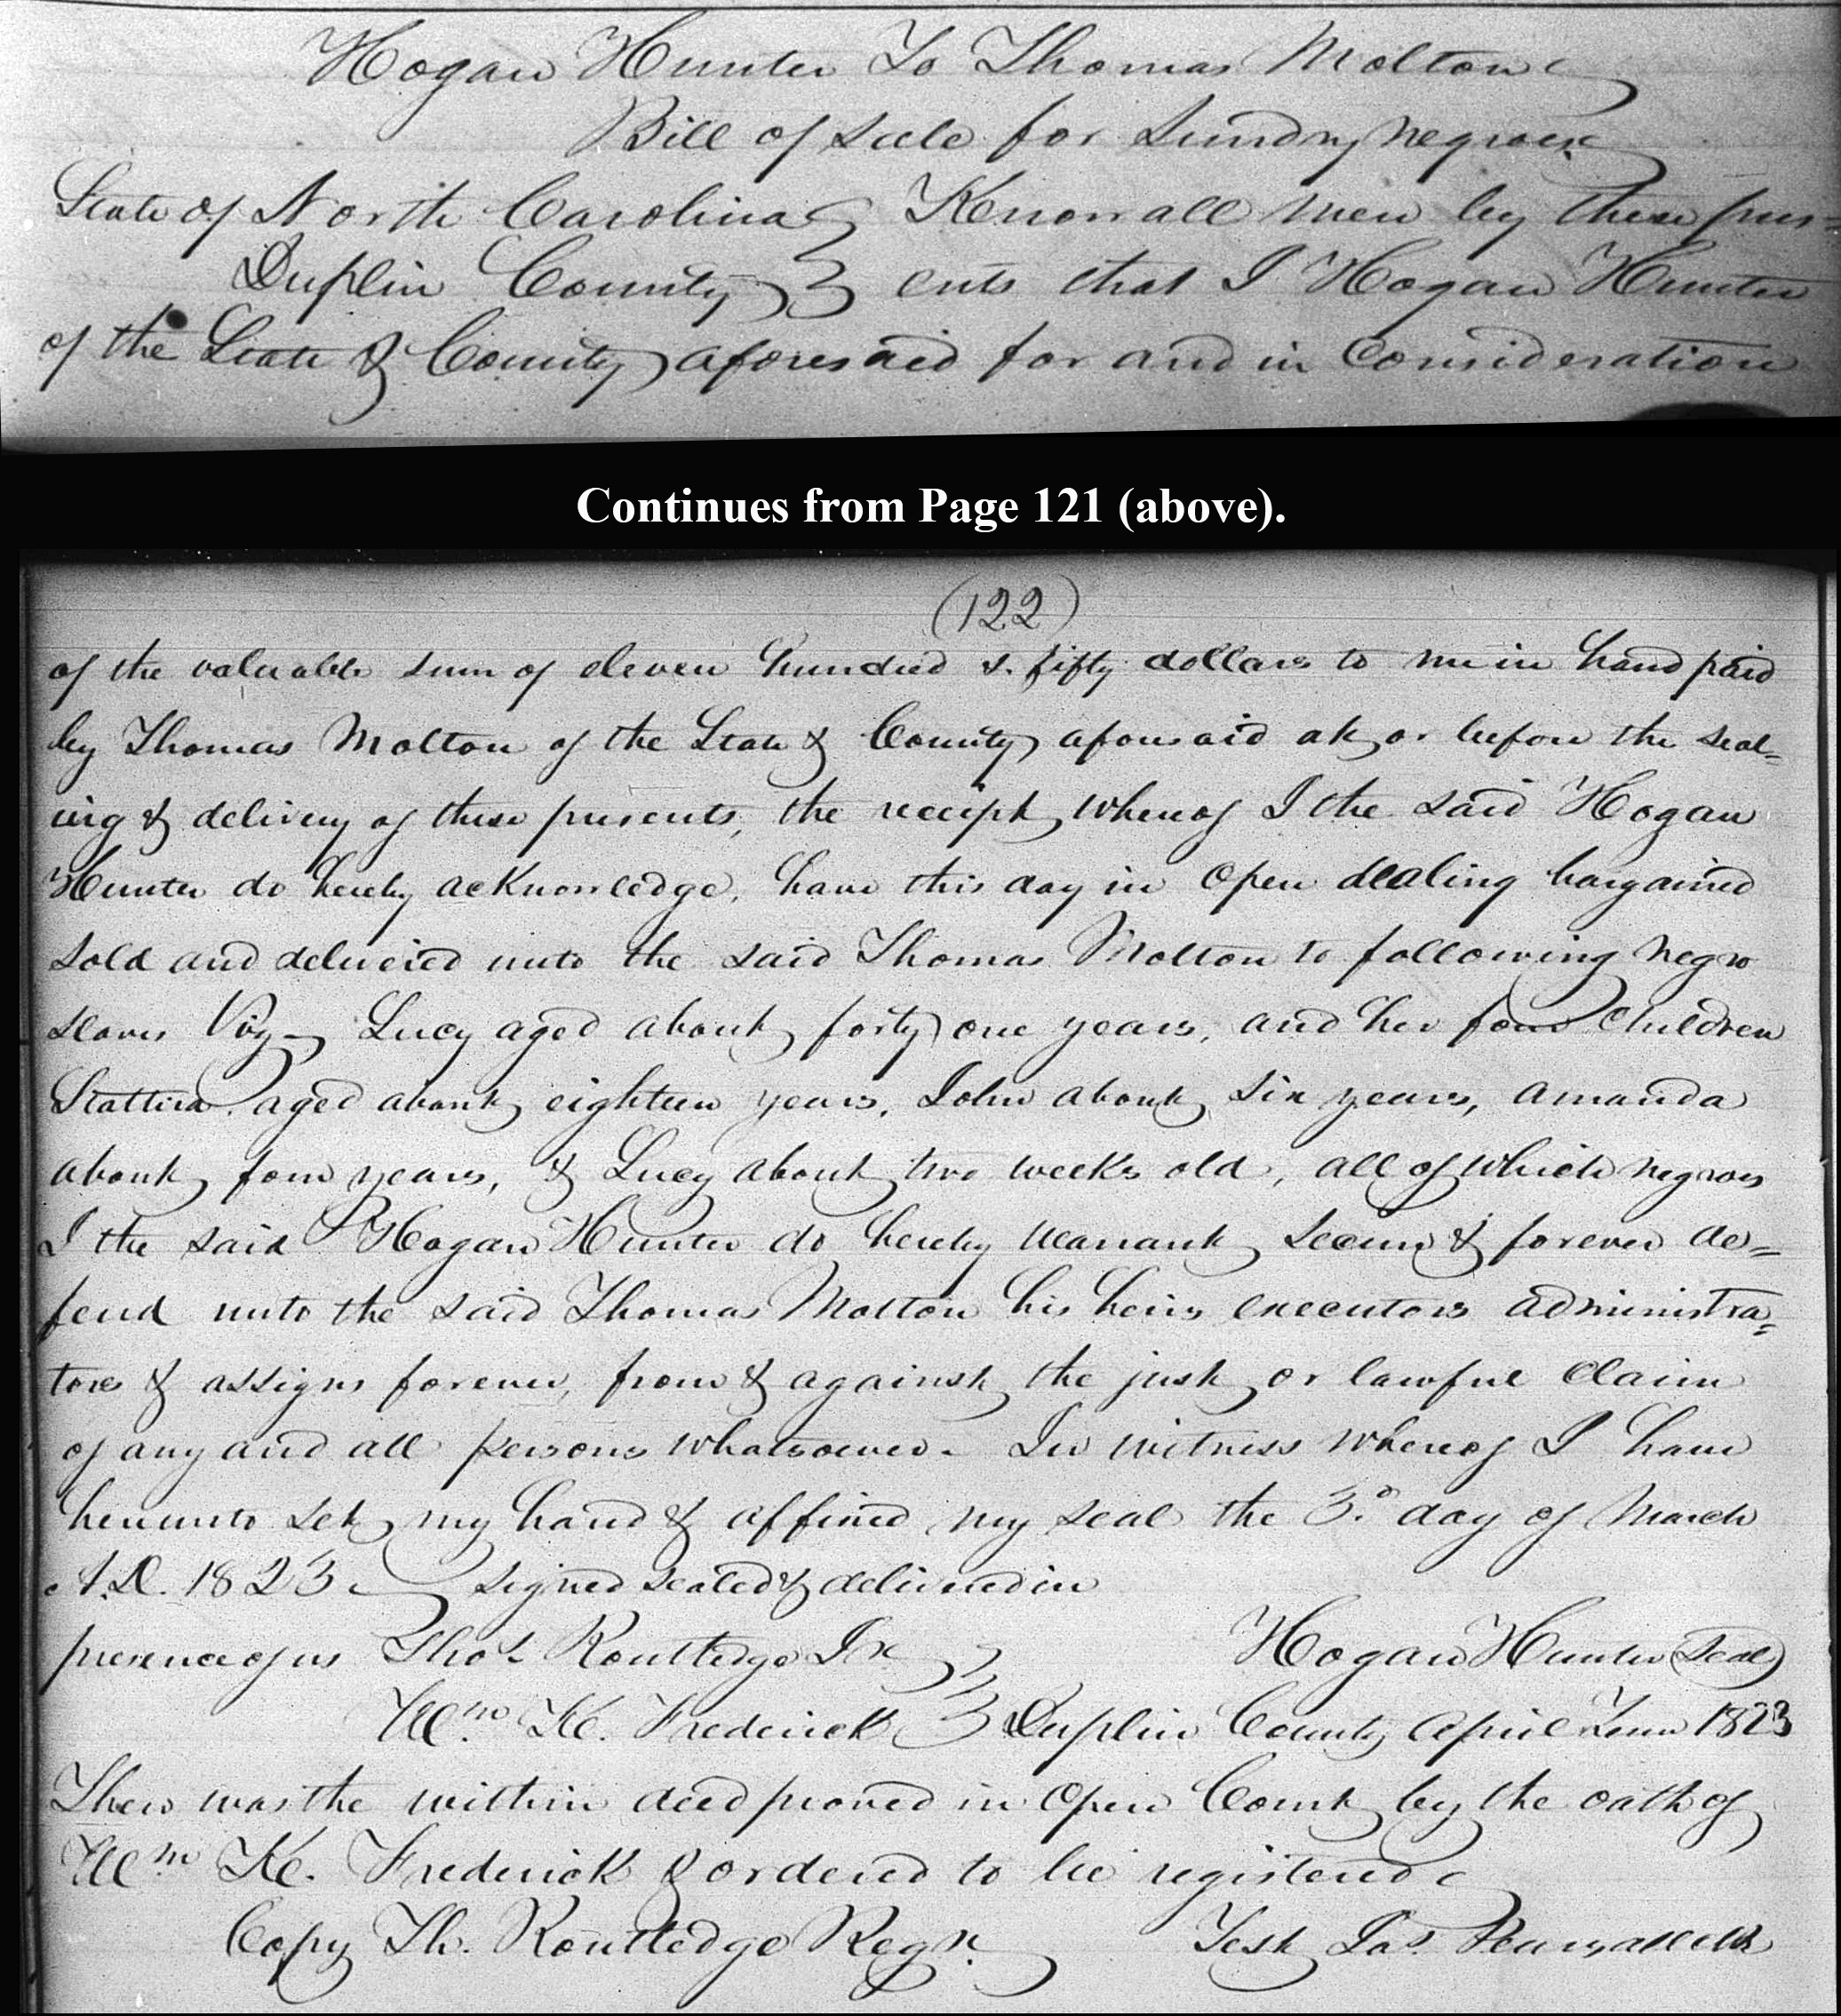 Hogan Hunter To Thomas Molton
Bill of sale for Sundry negroes
State of North Carolina } Know all men by these pres=
Duplin County } ents that I Hogan Hunter
of the State & County aforesaid for and in Consideration
Continues from Page 121 (above).
(122)
of the valuable sum of eleven hundred & fifty dollars to me in hand paid
by Thomas Molton of the State & County aforesaid at or before the seal=
ing & delivery of these presents, the receipt whereof I the said Hogan
Hunter do hereby acknowledge, have this day in Open dealing bargained
sold and delivered unto the said Thomas Molton to following negro
slaves Viz - Lucy aged about forty one years, and her four Children
Stattira aged about eighteen years, John about Six years, Amanda
about four years, & Lucy about two weeks old, all of which negroes
I the said Hogan Hunter do hereby Warrant Secure & forever de=
fend unto the said Thomas Molton his heirs executors administra=
tors & assigns forever, from & against the just or lawful Claim
of any and all persons whatsoever. In witness whereof I have
hereunto set my hand & affixed my seal the 3.d day of March
A.D. 1823. signed sealed & delivered in
presence of us Thos Routledge Jr } Hogan Hunter (Seal)
Wm. K. Frederick } Duplin County April Term 1823
Then was the within deed proved in Open Court by the oath of
Wm K. Frederick & ordered to be registered
Copy Th. Routledge Regr. Test Jas. Pearsall Clk